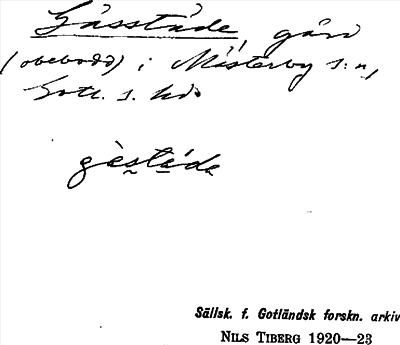 Gåsstäde, gård
(obebodd) i Mästerby s:n,
Gotl. s. hd.
gèstä́de
Sällsk. f. Gotländsk forskn. arkiv
NILS TIBERG 1920—23